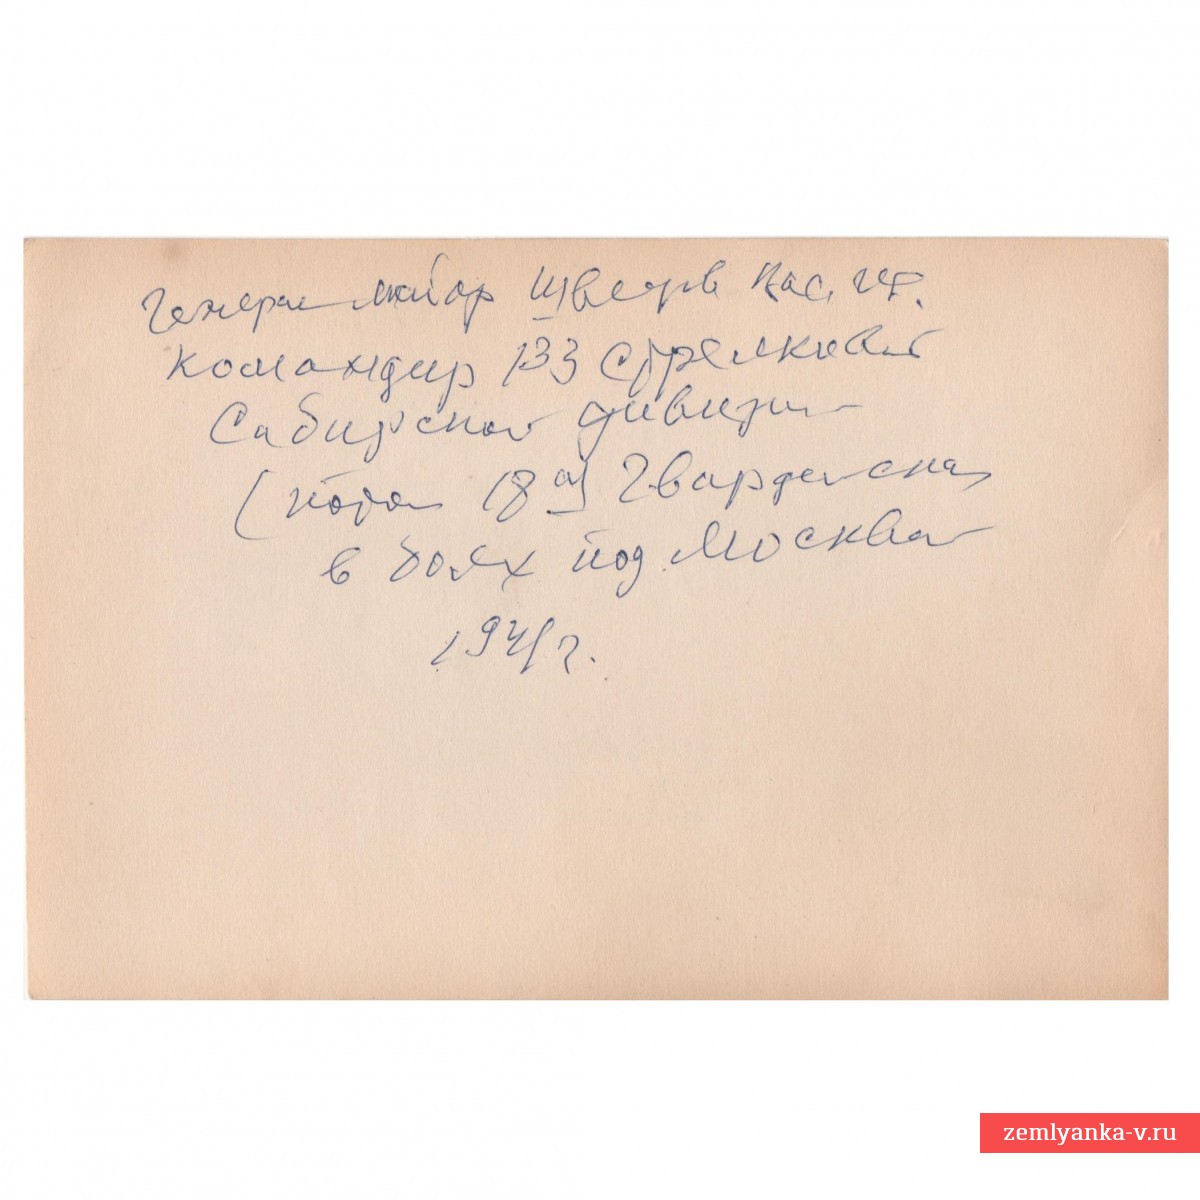 Генерал майор Швецов Вас. Ив.
Командир 133 стрелковой
Сибирской дивизии
(потом 18ая Гвардейская
в боях под Москвой
1941 г.
zemlyanka-v.ru